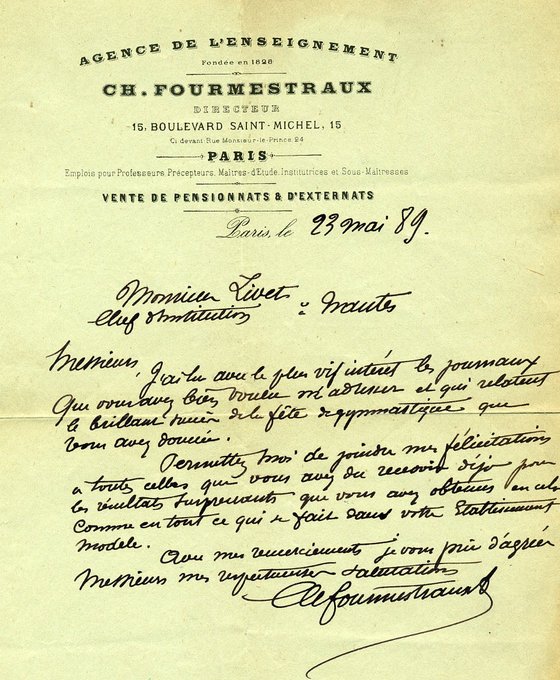 AGENCE DE L'ENSEIGNEMENT
Fondée en 1828
CH. FOURMESTRAUX
DIRECTEUR
15, BOULEVARD SAINT-MICHEL, 15
Ci devant Rue Monsieur-le-Prince 24
PARIS
Emplois pour Professeurs, Précepteurs, Maîtres-d'Etude, Institutrices et Sous-Maîtresses
VENTE DE PENSIONNATS & D'EXTERNATS
Paris, le 23 mai 89.
Monsieur Livet
Chef d'Institution à Nantes
Messieurs
J'ai lu avec le plus vif intérêt les journaux
que vous avez bien voulu m'adresser et qui relatent
le brillant succès de la fête de gymnastique que
vous avez donnée.
Permettez moi de joindre mes félicitations
à toutes celles que vous avez du recevoir déjà pour
les résultats surprenants que vous avez obtenus en cela
comme en tout ce qui se fait dans votre Etablissement
modèle.
Avec mes remerciements je vous prie d'agréer
Messieurs mes respectueuses salutations
Ch Fourmestraux